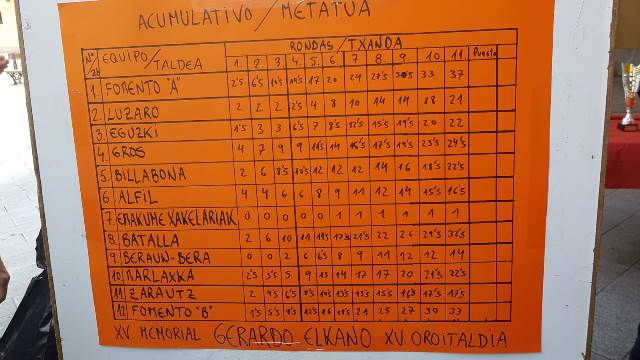 ACUMULATIVO / METATUA
Nº EQUIPO / TALDEA RONDAS / TXANDA
1. 2. 3. 4. 5. 6. 7 8. 9. 10 11. Puesto
1. FOMENTO "A" 2'5 6'5 17 20 24 33 37
2. LUZARO 2 2 2 2'5 4 8 10 14 14 18 21
3. EGUZKI 1'5 3 3 6'5 7 8'5 15'5 19'5 20 22
4. GROS 4 7 9 9 14 17'5 19'5 23'5 24'5
5. BILLABONA 2 6 8'5 10'5 12 12 12 14 16 18'5 22'5
6 ALFIL 4 4 6 6 8 9 11 12 14 15'5 16'5
7 EMAKUME XAKELARIAK 0 0 0 0 0 1 1 1 1 1 1
8 BATALLA 2 6 10 11 21'5 22 26 29'5 32'5
9. BERAUN-BERA 0 0 2 6 6'5 8 9 11 12 12 14
10. 2'5 3'5 5 9 13 14 17 17 20 21'5 22'5
11 ZARAUTZ 2 4'5 6'5 13'5 15'5 15'5 16'5 17'5 17'5
12 FOMENTO "B" 1'5 5'5 16 18'5 21 25 27 30 33
XV. MEMORIAL GERARDO ELKANO XV. OROITALDIA